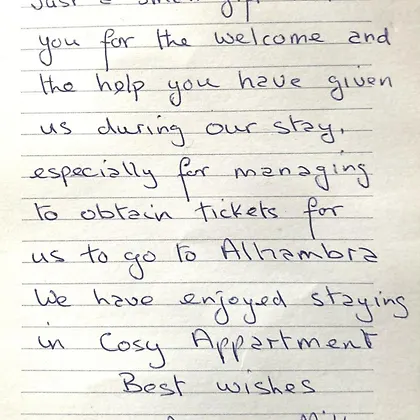 Just a small
you for the welcome and
the help you have given
us during our stay,
especially for managing
to obtain tickets for
us to go to Alhambra
We have enjoyed staying
in Cosy Appartment
Best wishes